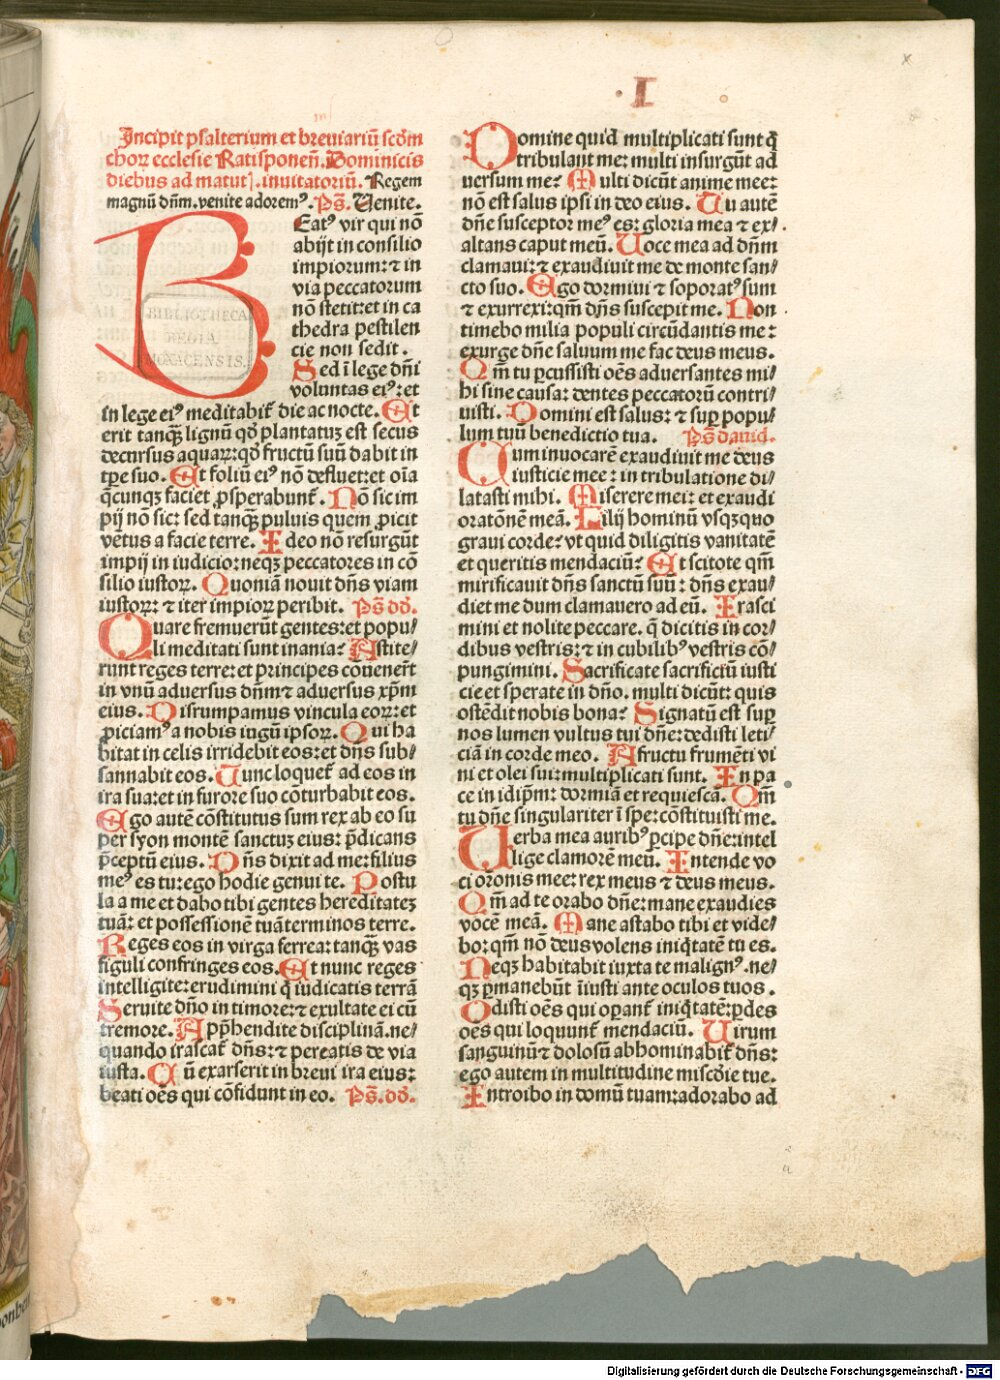 I
Incipit psalterium et breviariū scd̄m
chorꝝ ecclesie Ratisponen̄. Dominicis
diebus ad matut᷑. inuitatoriū. Regem
magnū dn̄m. venite adoremꝰ. Ps̄. Venite.
BEatꝰ vir qui nō
abijt in consilio
impiorum: ⁊ in
via peccatorum
nō stetit: et in ca
thedra pestilen
cie non sedit.
Sed ī lege dn̄i
voluntas eiꝰ: et
in lege eiꝰ meditabit᷑ die ac nocte. Et
erit tanqȝ lignū qd̄ plantatuȝ est secus
decursus aquarꝝ: qd̄ fructū suū dabit in
tꝑe suo. Et foliū eiꝰ nō defluet: et oīa
q̄cunqȝ faciet ꝓsperabunt᷑. Nō sic im
pij nō sic: sed tanqȝ puluis quem ꝓicit
vētus a facie terre. Ideo nō resurgūt
impij in iudicio: neqȝ peccatores in cō
silio iustoꝝ. Quoniā nouit dn̄s viam
iustoꝝ: ⁊ iter impioꝝ peribit. Ps̄ dd̄.
Quare fremuerūt gentes: et popu/
li meditati sunt inania? Astite/
runt reges terre: et principes cōuenerūt
in vnū aduersus dn̄m ⁊ aduersus xp̄m
eius. Disrumpamus vincula eoꝝ: et
ꝓiciamꝰ a nobis iugū ipsoꝝ. Qui ha
bitat in celis irridebit eos: et dn̄s sub/
sannabit eos. Tunc loquet᷑ ad eos in
ira sua: et in furore suo cōturbabit eos.
Ego autē cōstitutus sum rex ab eo su
per syon montē sanctuȝ eius: p̄dicans
p̄ceptū eius. Dn̄s dixit ad me: filius
meꝰ es tu: ego hodie genui te. Postu
la a me et dabo tibi gentes hereditateȝ
tuā: et possessionē tuā terminos terre.
Reges eos in virga ferrea: tanqȝ vas
figuli confringes eos. Et nunc reges
intelligite: erudimini q̄ iudicatis terrā
Seruite dn̄o in timore: ⁊ exultate ei cū
tremore. Appr̄hendite disciplinā. ne/
quando irascat᷑ dn̄s: ⁊ pereatis de via
iusta. Cū exarserit in breui ira eius:
beati oēs qui cōfidunt in eo. Ps̄. dd̄.
Domine quid multiplicati sunt q̄
tribulant me: multi insurgūt ad
uersum me? Multi dicūt anime mee:
nō est salus ipsi in deo eius. Tu autē
dn̄e susceptor meꝰ es: gloria mea ⁊ ex/
altans caput meū. Voce mea ad dn̄m
clamaui: ⁊ exaudiuit me de monte san/
cto suo. Ego dormiui ⁊ soporatꝰ sum
⁊ exurrexi: qm̄ dn̄s suscepit me. Non
timebo milia populi circūdantis me:
exurge dn̄e saluum me fac deus meus.
Qm̄ tu ꝑcussisti oēs aduersantes mi/
hi sine causa: dentes peccatorū contri/
uisti. Domini est salus: ⁊ suꝑ popu/
lum tuū benedictio tua. Ps̄ dauid.
Cum inuocarē exaudiuit me deus
iusticie mee: in tribulatione di/
latasti mihi. Miserere mei: et exaudi
oratōnē meā. Filij hominū vsqȝquo
graui corde? vt quid diligitis vanitatē
et queritis mendaciū? Et scitote qm̄
mirificauit dn̄s sanctū suū: dn̄s exau/
diet me dum clamauero ad eū. Irasci
mini et nolite peccare. q̄ dicitis in cor/
dibus vestris: ⁊ in cubilibꝰ vestris cō/
pungimini. Sacrificate sacrificiū iusti
cie et sperate in dn̄o. multi dicūt: quis
ostēdit nobis bona? Signatū est suꝑ
nos lumen vultus tui dn̄e: dedisti leti/
ciā in corde meo. A fructu frumēti vi
ni et olei sui: multiplicati sunt. In pa
ce in idip̄m: dormiā et requiescā. Qm̄
tu dn̄e singulariter ī spe: cōstituisti me.
Verba mea auribꝰ ꝑcipe dn̄e: intel
lige clamorē meū. Intende vo
ci orōnis mee: rex meus ⁊ deus meus.
Qm̄ ad te orabo dn̄e: mane exaudies
vocē meā. Mane astabo tibi et vide/
bo: qm̄ nō deus volens iniq̄tatē tu es.
Neqȝ habitabit iuxta te malignꝰ. ne/
qȝ ꝑmanebūt īiusti ante oculos tuos.
Odisti oēs qui oꝑant᷑ iniq̄tatē: ꝑdes
oēs qui loquunt᷑ mendaciū. Virum
sanguinū ⁊ dolosū abhominabit᷑ dn̄s:
ego autem in multitudine mīscdie tue.
Introibo in domū tuam: adorabo ad
BIBLIOTHECA
REGIA
MONACENSIS.
Digitalisierung gefördert durch die Deutsche Forschungsgemeinschaft - DFG